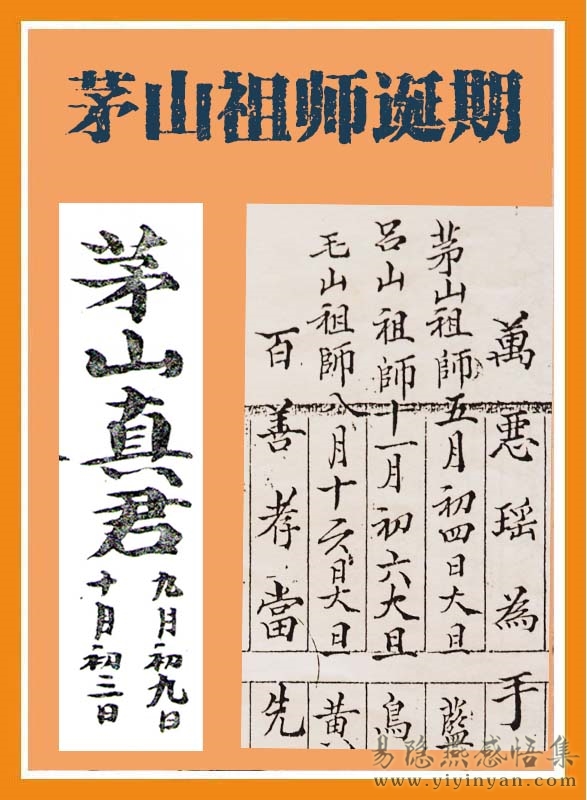 茅山祖师诞期
茅山真君
九月初九日
十月初三日
萬悪瑶為手
茅山祖師五月初四日大旦
藍
吕山祖師十一月初六大旦
鳥
毛山祖師八月十六日大旦
黄
百善孝當先
易隐燕感悟集
www.yiyinyan.com